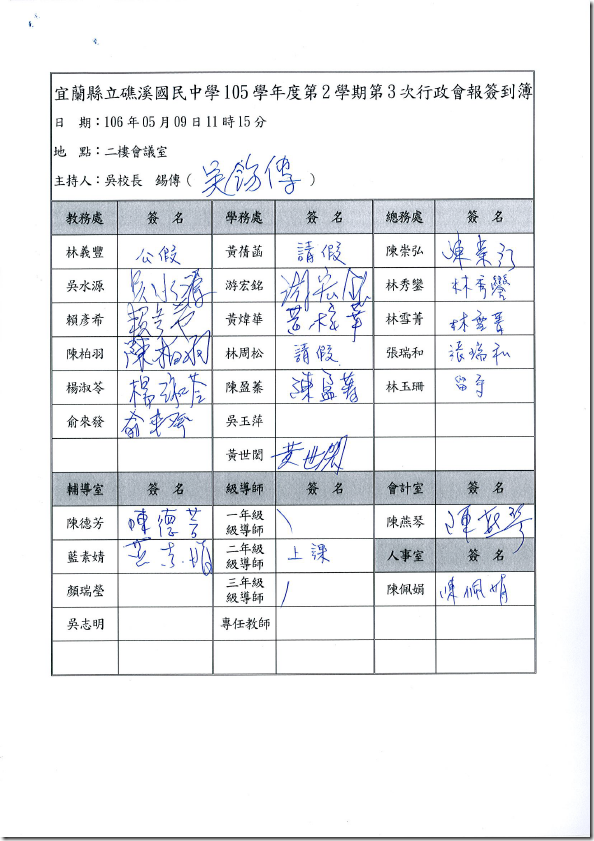 宜蘭縣立礁溪國民中學105學年度第2學期第3次行政會報簽到簿
日 期：106年05月09日11時15分
地 點：二樓會議室
主持人：吳校長 錫傳（吳錫傳）
教務處 簽 名 學務處 簽 名 總務處 簽 名
林義豐 公假 黃蒨菡 請假 陳崇弘 陳崇弘
吳水源 吳水源 游宏銘 游宏銘 林秀鑾 林秀鑾
賴彥希 賴彥希 黃煒華 黃煒華 林雪菁 林雪菁
陳柏羽 陳柏羽 林周松 請假 張瑞和 張瑞和
楊淑苓 楊淑苓 陳盈蓁 陳盈蓁 林玉珊 留守
俞來發 俞來發 吳玉萍
黃世閎 黃世閎
輔導室 簽 名 級導師 簽 名 會計室 簽 名
陳德芳 陳德芳 一年級級導師 陳燕琴 陳燕琴
藍素婧 藍素婧 二年級級導師 上課 人事室 簽 名
顏瑞瑩 三年級級導師 陳佩娟 陳佩娟
吳志明 專任教師